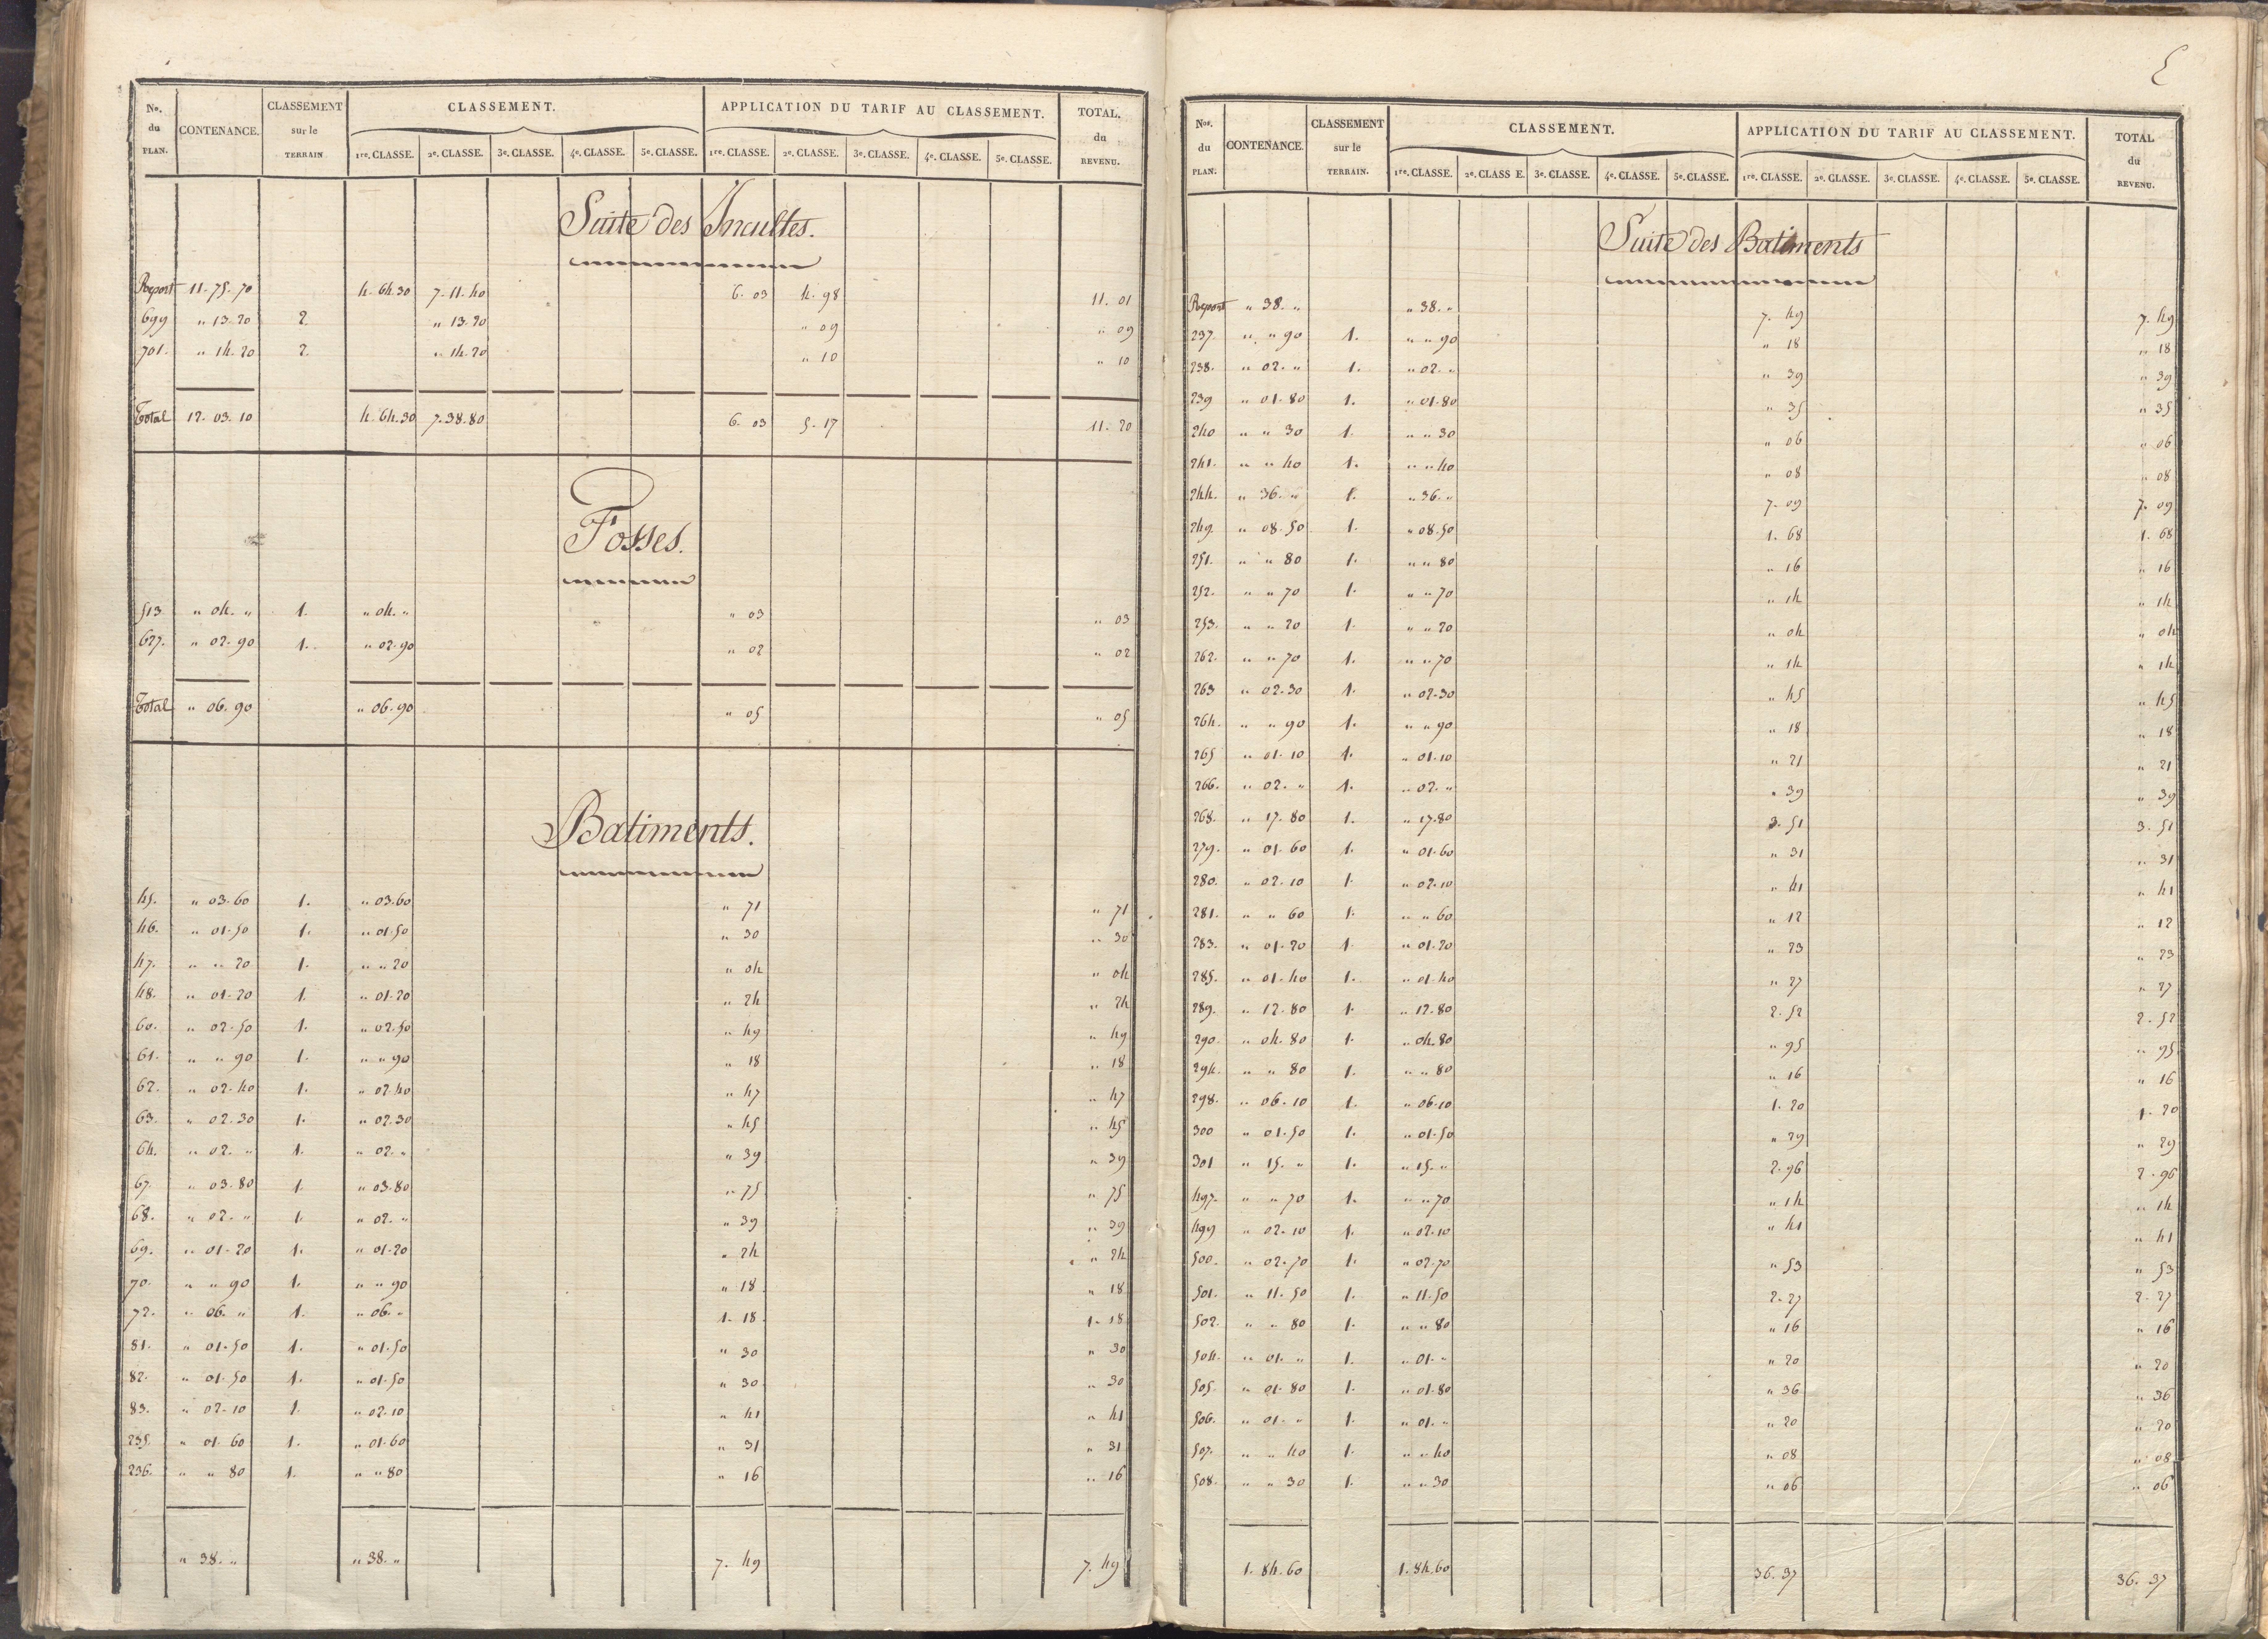 No. du PLAN. CONTENANCE. CLASSEMENT sur le TERRAIN CLASSEMENT. APPLICATION DU TARIF AU CLASSEMENT. TOTAL. du REVENU.
1re. CLASSE. 2e. CLASSE. 3e. CLASSE. 4e. CLASSE. 5e. CLASSE. 1re. CLASSE. 2e. CLASSE. 3e. CLASSE. 4e. CLASSE. 5e. CLASSE.
Suite des Incultes.
Report 11. 75. 70 4. 64. 30 7. 11. 40 6. 03 4. 98 11. 01
699 " 13. 20 2. " 13. 20 " 09 " 09
701. " 14. 20 2. " 14. 20 " 10 " 10
Total 12. 03. 10 4. 64. 30 7. 38. 80 6. 03 5. 17 11. 20
Fosses.
513 " 04. " 1. " 04. " " 03 " 03
627. " 02. 90 1. " 02. 90 " 02 " 02
Total " 06. 90 " 06. 90 " 05 " 05
Batiments.
45. " 03. 60 1. " 03. 60 " 71 " 71
46. " 01. 50 1. " 01. 50 " 30 " 30
47. " " 20 1. " " 20 " 04 " 04
48. " 01. 20 1. " 01. 20 " 24 " 24
60. " 02. 50 1. " 02. 50 " 49 " 49
61. " " 90 1. " " 90 " 18 " 18
62. " 02. 40 1. " 02. 40 " 47 " 47
63. " 02. 30 1. " 02. 30 " 45 " 45
64. " 02. " 1. " 02. " " 39 " 39
67. " 03. 80 1. " 03. 80 " 75 " 75
68. " 02. " 1. " 02. " " 39 " 39
69. " 01. 20 1. " 01. 20 " 24 " 24
70. " " 90 1. " " 90 " 18 " 18
72. " 06. " 1. " 06. " 1. 18 1. 18
81. " 01. 50 1. " 01. 50 " 30 " 30
82. " 01. 50 1. " 01. 50 " 30 " 30
83. " 02. 10 1. " 02. 10 " 41 " 41
235. " 01. 60 1. " 01. 60 " 31 " 31
236. " " 80 1. " " 80 " 16 " 16
" 38. " " 38. " 7. 49 7. 49
Nos. du PLAN. CONTENANCE. CLASSEMENT sur le TERRAIN. CLASSEMENT. APPLICATION DU TARIF AU CLASSEMENT. TOTAL du REVENU.
1re. CLASSE. 2e. CLASS E. 3e. CLASSE. 4e. CLASSE. 5e. CLASSE. 1re. CLASSE. 2e. CLASSE. 3e. CLASSE. 4e. CLASSE. 5e. CLASSE.
Suite des Batiments
Report " 38. " " 38. " 7. 49 7. 49
237. " " 90 1. " " 90 " 18 " 18
238. " 02. " 1. " 02. " " 39 " 39
239 " 01. 80 1. " 01. 80 " 35 " 35
240 " " 30 1. " " 30 " 06 " 06
241. " " 40 1. " " 40 " 08 " 08
244. " 36. " 1. " 36. " 7. 09 7. 09
249. " 08. 50 1. " 08. 50 1. 68 1. 68
251. " " 80 1. " " 80 " 16 " 16
252. " " 70 1. " " 70 " 14 " 14
253. " " 20 1. " " 20 " 04 " 04
262. " " 70 1. " " 70 " 14 " 14
263 " 02. 30 1. " 02. 30 " 45 " 45
264. " " 90 1. " " 90 " 18 " 18
265 " 01. 10 1. " 01. 10 " 21 " 21
266. " 02. " 1. " 02. " " 39 " 39
268. " 17. 80 1. " 17. 80 3. 51 3. 51
279. " 01. 60 1. " 01. 60 " 31 " 31
280. " 02. 10 1. " 02. 10 " 41 " 41
281. " " 60 1. " " 60 " 12 " 12
283. " 01. 20 1. " 01. 20 " 23 " 23
285. " 01. 40 1. " 01. 40 " 27 " 27
289. " 12. 80 1. " 12. 80 2. 52 2. 52
290. " 04. 80 1. " 04. 80 " 95 " 95
294. " " 80 1. " " 80 " 16 " 16
298. " 06. 10 1. " 06. 10 1. 20 1. 20
300 " 01. 50 1. " 01. 50 " 29 " 29
301 " 15. " 1. " 15. " 2. 96 2. 96
497. " " 70 1. " " 70 " 14 " 14
499 " 02. 10 1. " 02. 10 " 41 " 41
500. " 02. 70 1. " 02. 70 " 53 " 53
501. " 11. 50 1. " 11. 50 2. 27 2. 27
502. " " 80 1. " " 80 " 16 " 16
504. " 01. " 1. " 01. " " 20 " 20
505. " 01. 80 1. " 01. 80 " 36 " 36
506. " 01. " 1. " 01. " " 20 " 20
507. " " 40 1. " " 40 " 08 " 08
508. " " 30 1. " " 30 " 06 " 06
1. 84. 60 1. 84. 60 36. 37 36. 37